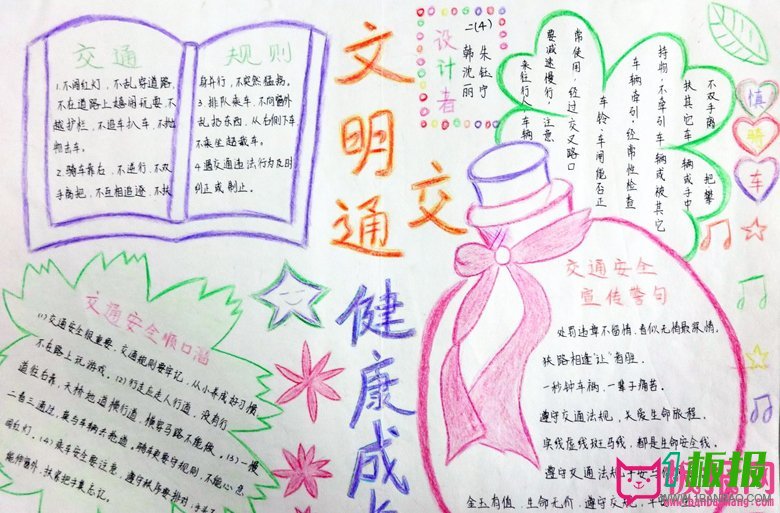 交通 规则
1.不闯红灯，不乱穿道路，
不在道路上嬉闹玩耍，不
越护栏，不追车扒车，不抛
物击车。
2.骑车靠右，不逆行，不双
手离把，不互相追逐，不扶
身并行，不突然猛拐。
3.排队乘车，不向窗外
乱扔东西，从右侧下车
不乘坐超载车。
4.遇交通违法行为及时
纠正或制止。
文明交通
健康成长
设计者
二(4)
朱钰宁
韩沈丽
不双手离把攀
扶其它车辆或手中
持物，不牵引车辆或被其它
车辆牵引，经常性检查
车铃、车闸能否正
常使用，经过交叉路口
要减速慢行，注意
来往行人、车辆
慎骑车
交通安全顺口溜
(1)交通安全很重要，交通规则要牢记，从小养成好习惯
不在路上玩游戏。(2)行走应走人行道，没有行
道往右靠，天桥地道横行道，横穿马路不能做。(3)一慢
二看三通过，莫与车辆去抢道，骑车更要守规则，不能心急
闯红灯。(4)乘车安全要注意，遵守秩序要排队，手头不
能伸窗外，扶紧把手莫忘记。
交通安全
宣传警句
处罚违章不留情，看似无情最深情。
狭路相逢"让"者胜。
一秒钟车祸，一辈子痛苦。
遵守交通法规，关爱生命旅程。
实线虚线斑马线，都是生命安全线。
遵守交通法规
金玉有值，生命无价，遵守交规，平安
1板报
WWW.1BANBAO.COM